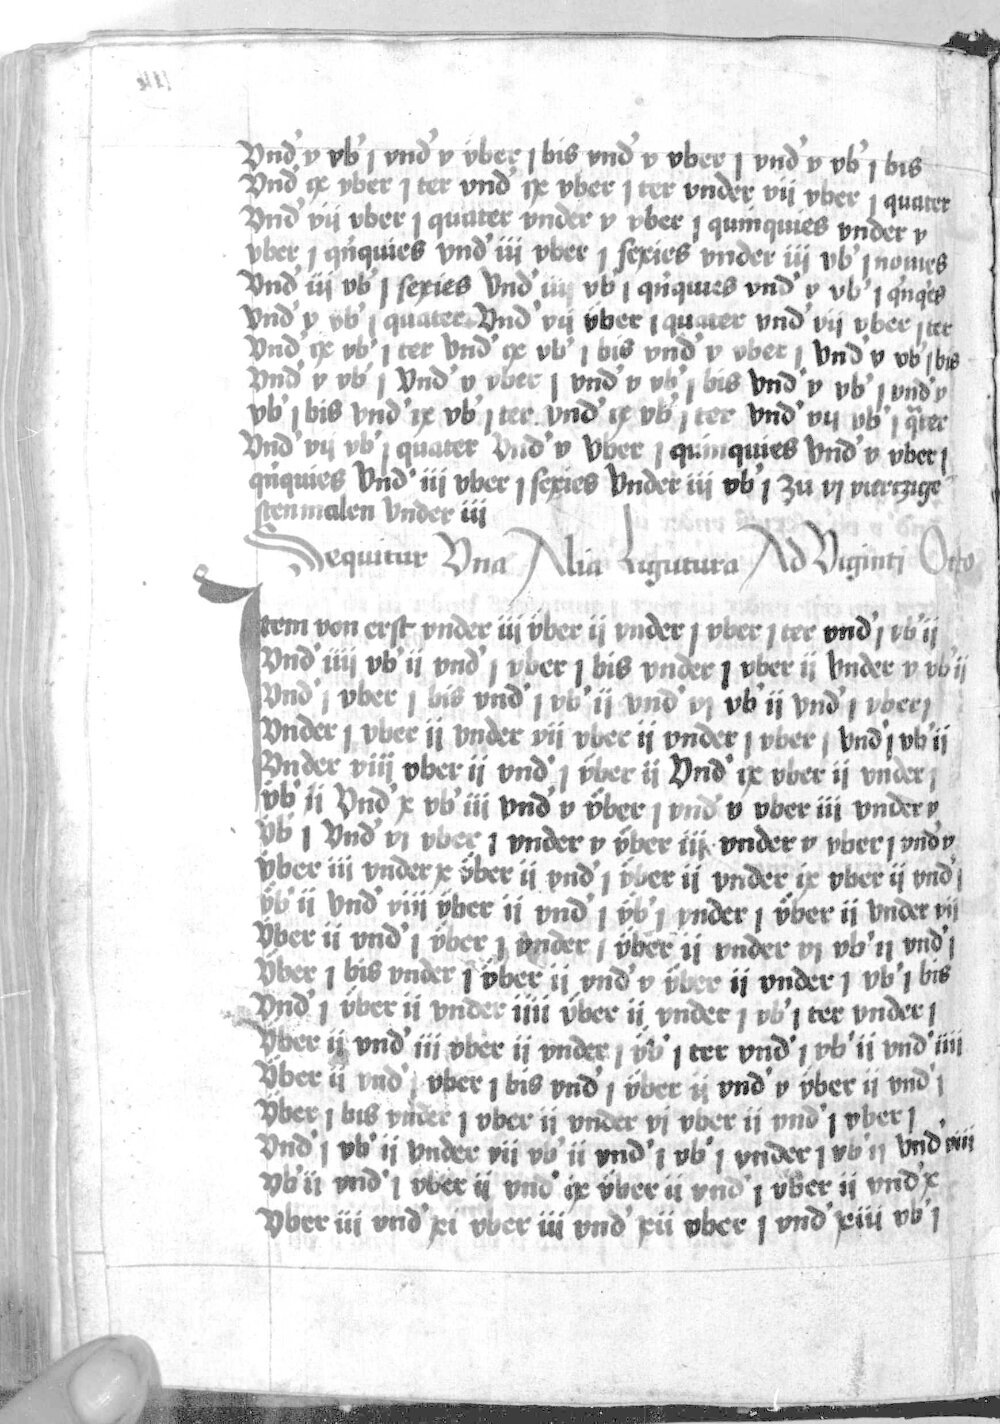 Vnd' v vb' j vnd' v v́ber j bis vnd' v vber j vnd' v vb' j bis
Vnd' ix vber j ter vnd' ix vber j ter vnder vij vber j quater
Vnd' vij vber j quater vnder v vber j quinquies vnder v
vber j qn̄quies vnd' iij vber j sexies vnder iij vb' j nouies
Vnd' iij vb' j sexies Vnd' iij vb' j qn̄quies vnd' v vb' j qn̄q̄es
Vnd' v vb' j quater Vnd' vij v́ber j quater vnd' vij vber j ter
Vnd' ix vb' j ter Vnd' ix vb' j bis vnd' v vber j Vnd' v vb' j bis
Vnd' v vb' j Vnd' v vber j vnd' v vb' j bis Vnd' v vb' j vnd' v
vb' j bis vnd' ix vb' j ter vnd' ix vb' j ter Vnd' vij vb' j q̄ter
Vnd' vij vb' j quater Vnd' v Vber j quinquies Vnd' v vber j
qn̄quies Vnd' iij vber j sexies Vnder iij vb' j Zu vj viertzige
stenmalen Vnder iij
Sequitur Vna Alia Ligutura Ad Viginti Otto
Item von erst vnder iij v́ber ij vnder j vber j ter vnd' j vb' ij
Vnd' iiij vb' ij vnd' j vber j bis vnder j vber ij Vnder v vb' ij
Vnd' j vber j bis vnd' j vb' ij vnd' vj vb' ij vnd' j vber j
Vnder j vber ij vnder vij vber ij vnder j vber j Vnd' j vb' ij
Vnder viij vber ij vnd' j v́ber ij Vnd' ix vber ij vnder j
vb' ij Vnd' x vb' iij vnd' v v́ber j vnd' v vber iij vnder v
Vb' j Vnd' vj vber j vnder v v́ber iij vnder v vber j vnd' v
v́ber iij vnder x v́ber ij vnd' j v́ber ij vnder ix vber ij vnd' j
v́b' ij Vnd' viij v́ber ij vnd' j v́b' j vnder j v́ber ij Vnder vij
V́ber ij vnd' j v́ber j vnder j v́ber ij vnder vj vb' ij vnd' j
V́ber j bis vnder j v́ber ij vnd' v v́ber ij vnder j vb' j bis
Vnd' j v́ber ij vnder iiij v́ber ij vnder j vb' j ter vnder j
Vber ij vnd' iij v́ber ij vnder j v́b' j ter vnd' j vb' ij vnd' iiij
V́ber ij vnd' j vber j bis vnd' j v́ber ij vnd' v v́ber ij vnd' j
V́ber j bis vnder j vber ij vnder vj vber ij vnd' j vber j
Vnd' j vb' ij vnder vij vb' ij vnd' j vb' j vnder j vb' ij Vnd' viij
Vb' ij vnd' j vber ij vnd' ix v́ber ij vnd' j v́ber ij vnd' x
Vber iij vnd' xj vber iij vnd' xij vber j vnd' xiij vb' j